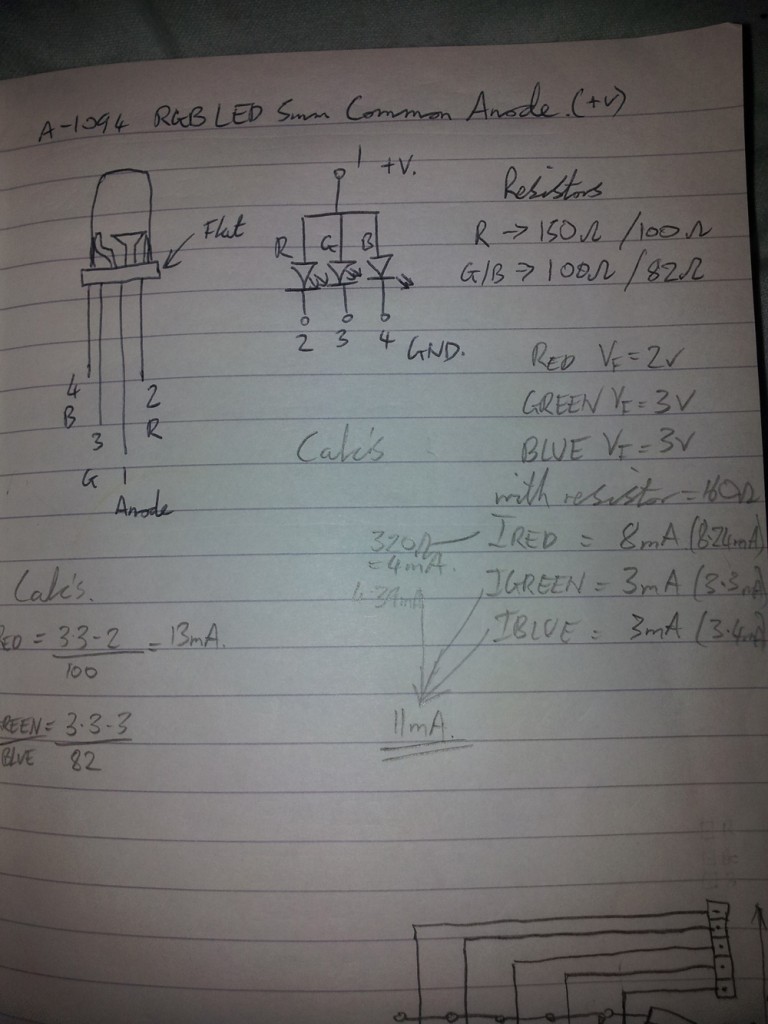 A-1094 RGB LED 5mm Common Anode. (+V)
1 +V.
Resistors
Flat
R G B
R → 150Ω / 100Ω
G/B → 100Ω / 82Ω
2 3 4 GND.
RED VF = 2V
4 2
B R
GREEN VF = 3V
3
Calc's
BLUE VF = 3V
G 1
with resistor = 160Ω
Anode
320Ω
IRED = 8mA (8.24mA)
= 4mA.
Calc's.
4.39mA
IGREEN = 3mA (3.3mA)
ED = 3.3-2 = 13mA.
100
IBLUE = 3mA (3.4mA
REEN = 3.3-3
BLUE 82
11mA.